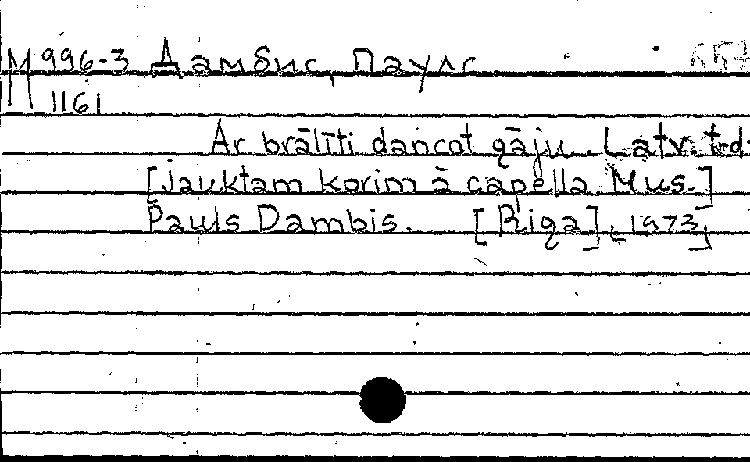 М 996-3 Дамбис, Паулс
1161
Ar brālīti dancot gāju. Latv. t-d.
[Jauktam korim à capella. Mus.]
Pauls Dambis. [Rīga], [1973]